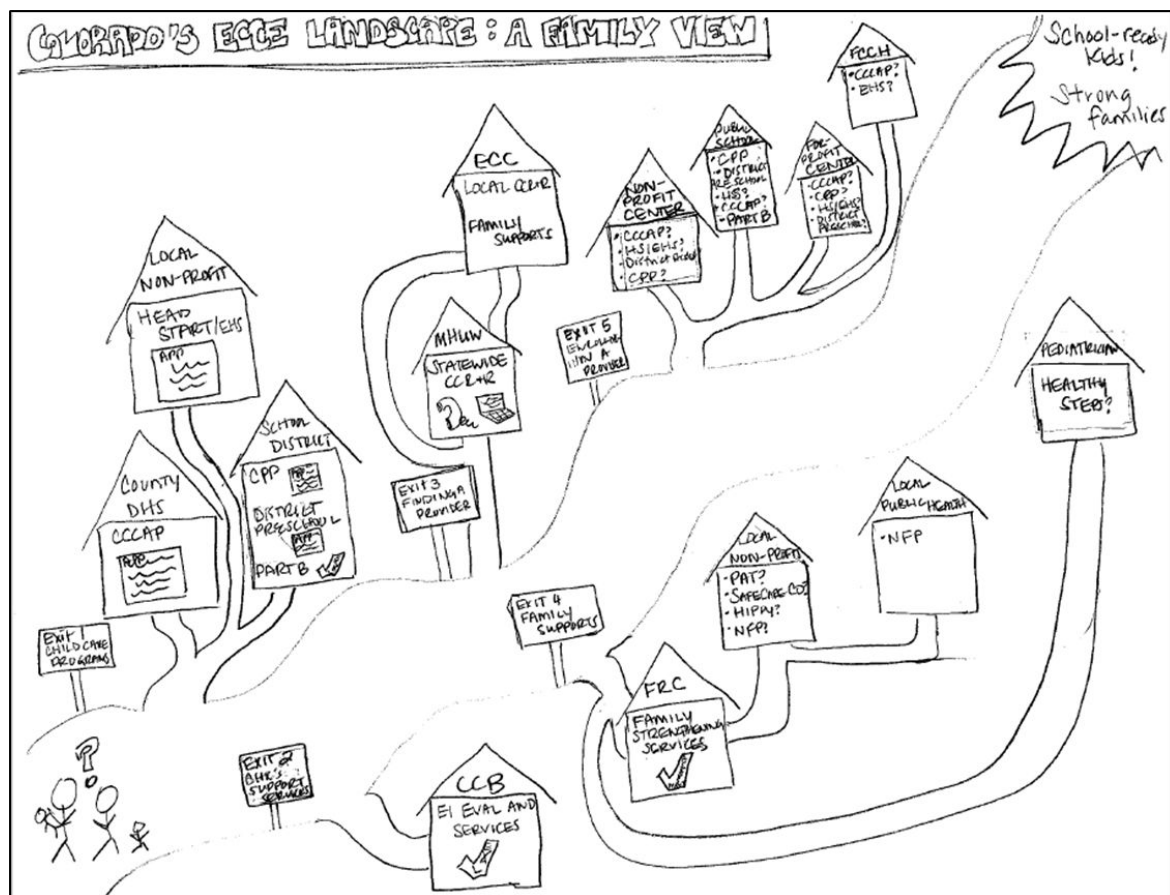 COLORADO'S ECCE LANDSCAPE: A FAMILY VIEW
School-ready
Kids!
Strong
families
FCCH
• CCCAP?
• EHS?
PUBLIC
SCHOOL
• CPP
• DISTRICT
PRESCHOOL
• HS?
• CCCAP?
• PART B
FOR-
PROFIT
CENTER
• CCCAP?
• CPP?
• HS/EHS?
• DISTRICT
NON-
PROFIT
CENTER
• CCCAP?
• HS/EHS?
• District
• CPP?
ECC
LOCAL CCR+R
FAMILY
SUPPORTS
LOCAL
NON-PROFIT
HEAD
START/EHS
APP
MHUW
STATEWIDE
CCR+R
EXIT 5
ENROLLING
A
PROVIDER
PEDIATRICIAN
HEALTHY
STEPS?
SCHOOL
DISTRICT
CPP
APP
DISTRICT
PRESCHOOL
APP
PART B
COUNTY
DHS
CCCAP
APP
Exit 3
FINDING A
PROVIDER
LOCAL
PUBLIC HEALTH
• NFP
LOCAL
NON-PROFIT
• PAT?
• SAFECARE CO?
• HIPPY?
• NFP?
EXIT 4
FAMILY
SUPPORTS
Exit 1
CHILD CARE
PROGRAMS
FRC
FAMILY
STRENGTHENING
SERVICES
EXIT 2
SUPPORT
SERVICES
CCB
EI EVAL AND
SERVICES
?